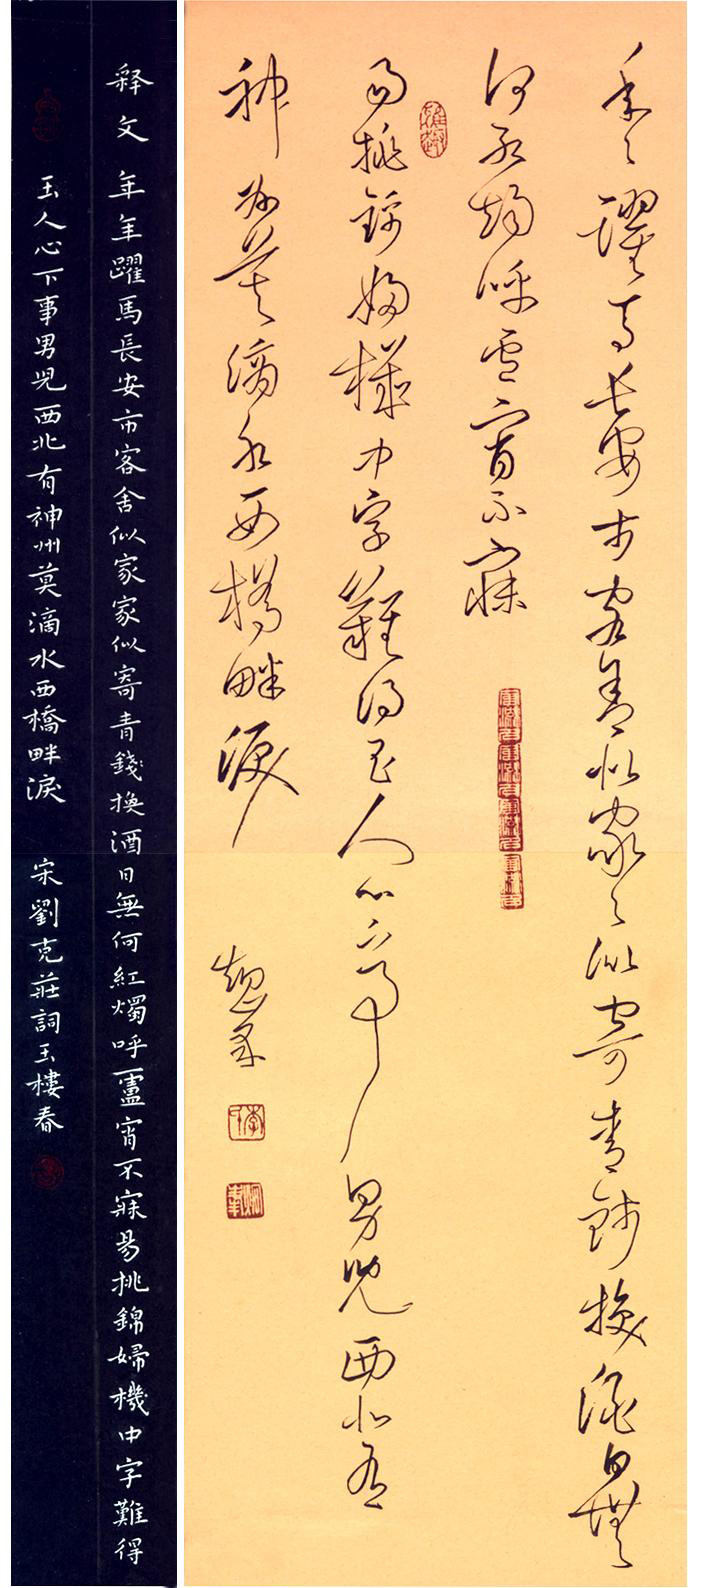 年々躍馬長安市客舍似家々似寄青錢換酒日無
何紅燭呼盧宵不寐
易挑錦婦機中字難得玉人心下事男兒西北有
神州莫滴水西橋畔淚
释文 年年躍馬長安市客舍似家家似寄青錢換酒日無何紅燭呼盧宵不寐易挑錦婦機中字難得
玉人心下事男兒西北有神州莫滴水西橋畔淚 宋劉克莊詞玉樓春